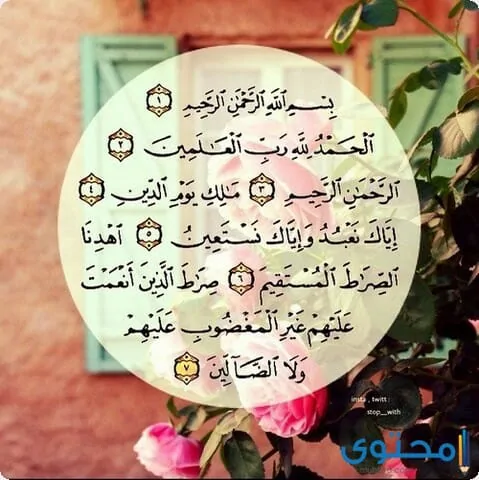 بِسْمِ اللَّهِ الرَّحْمَٰنِ الرَّحِيمِ ١
الْحَمْدُ لِلَّهِ رَبِّ الْعَالَمِينَ ٢
الرَّحْمَٰنِ الرَّحِيمِ ٣ مَالِكِ يَوْمِ الدِّينِ ٤
إِيَّاكَ نَعْبُدُ وَإِيَّاكَ نَسْتَعِينُ ٥ اهْدِنَا
الصِّرَاطَ الْمُسْتَقِيمَ ٦ صِرَاطَ الَّذِينَ أَنْعَمْتَ
عَلَيْهِمْ غَيْرِ الْمَغْضُوبِ عَلَيْهِمْ
وَلَا الضَّالِّينَ ٧
insta , twitt :
stop__with
محتوى